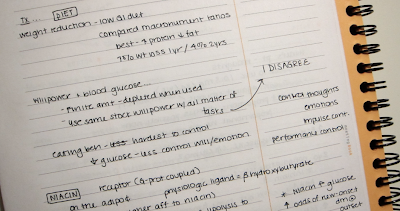 Tx DIET
weight reduction - low GI diet
compared macronutrient ratios
best - ↑ protein ↓ fat
wt loss 1yr / 4% 2yrs
I DISAGREE
willpower & blood glucose
- finite amt - depleted when used
- use same stock willpower w/ all matter of
tasks
control thoughts
emotions
impulse contr.
performance control
eating beh - less hardest to control
↓ glucose - less control will/emotion
NIACIN receptor (G-prot coupled)
on the adipo physiologic ligand = β hydroxybutyrate
her aff to niacin)
lipolysis to
* Niacin ↑ glucose
↑ odds of new-onset
dm
outset